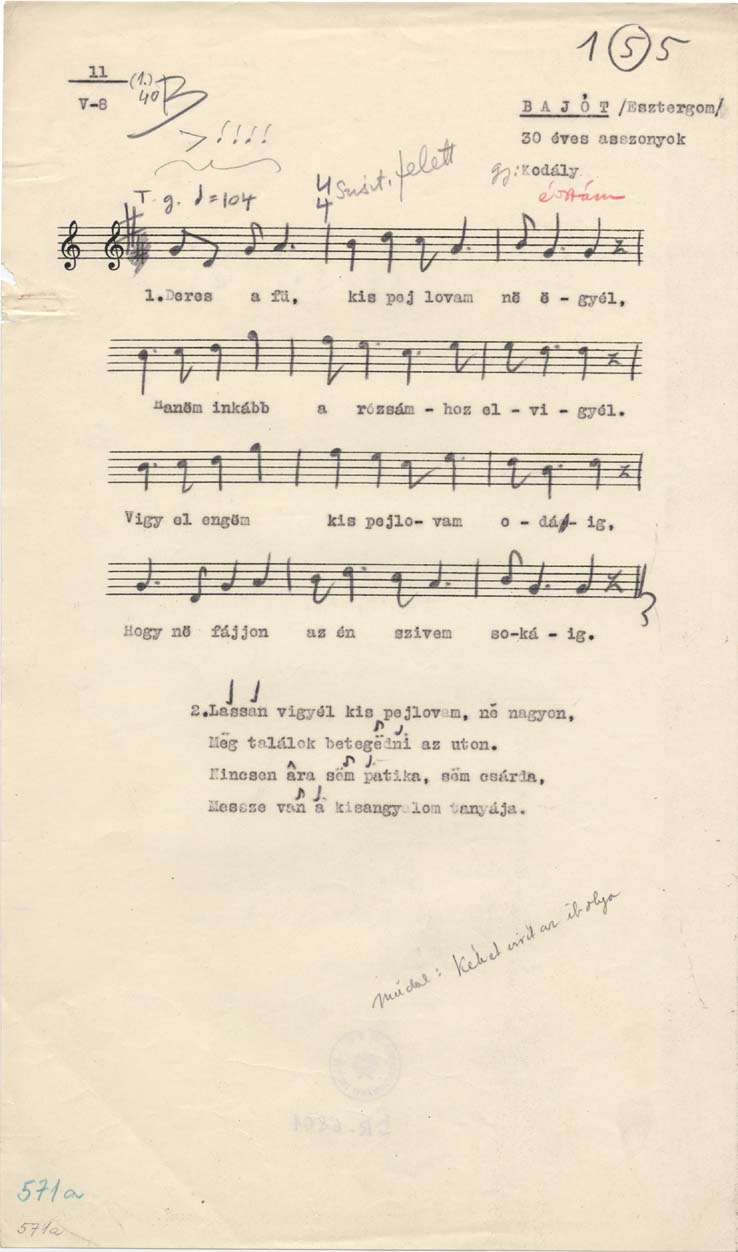 1 5 5
11
V-8
(1.)
40
B
>!!!!
BAJÓT /Esztergom/
30 éves asszonyok
gy: Kodály
T. g. = 104
4
4
felett
1.Deres a fü, kis pej lovam nö ö - gyél,
Hanöm inkább a rózsám - hoz el - vi - gyél.
Vigy el engöm kis pejlo- vam o - dá - ig,
Hogy nö fájjon az én szivem so-ká - ig.
2.Lassan vigyél kis pejlovam, në nagyon,
Mëg találok betegëdni az uton.
Nincsen âra sëm patika, sëm csárda,
Messze van a kisangyalom tanyája.
műdal: Kéket virít az ibolya
571a
571a